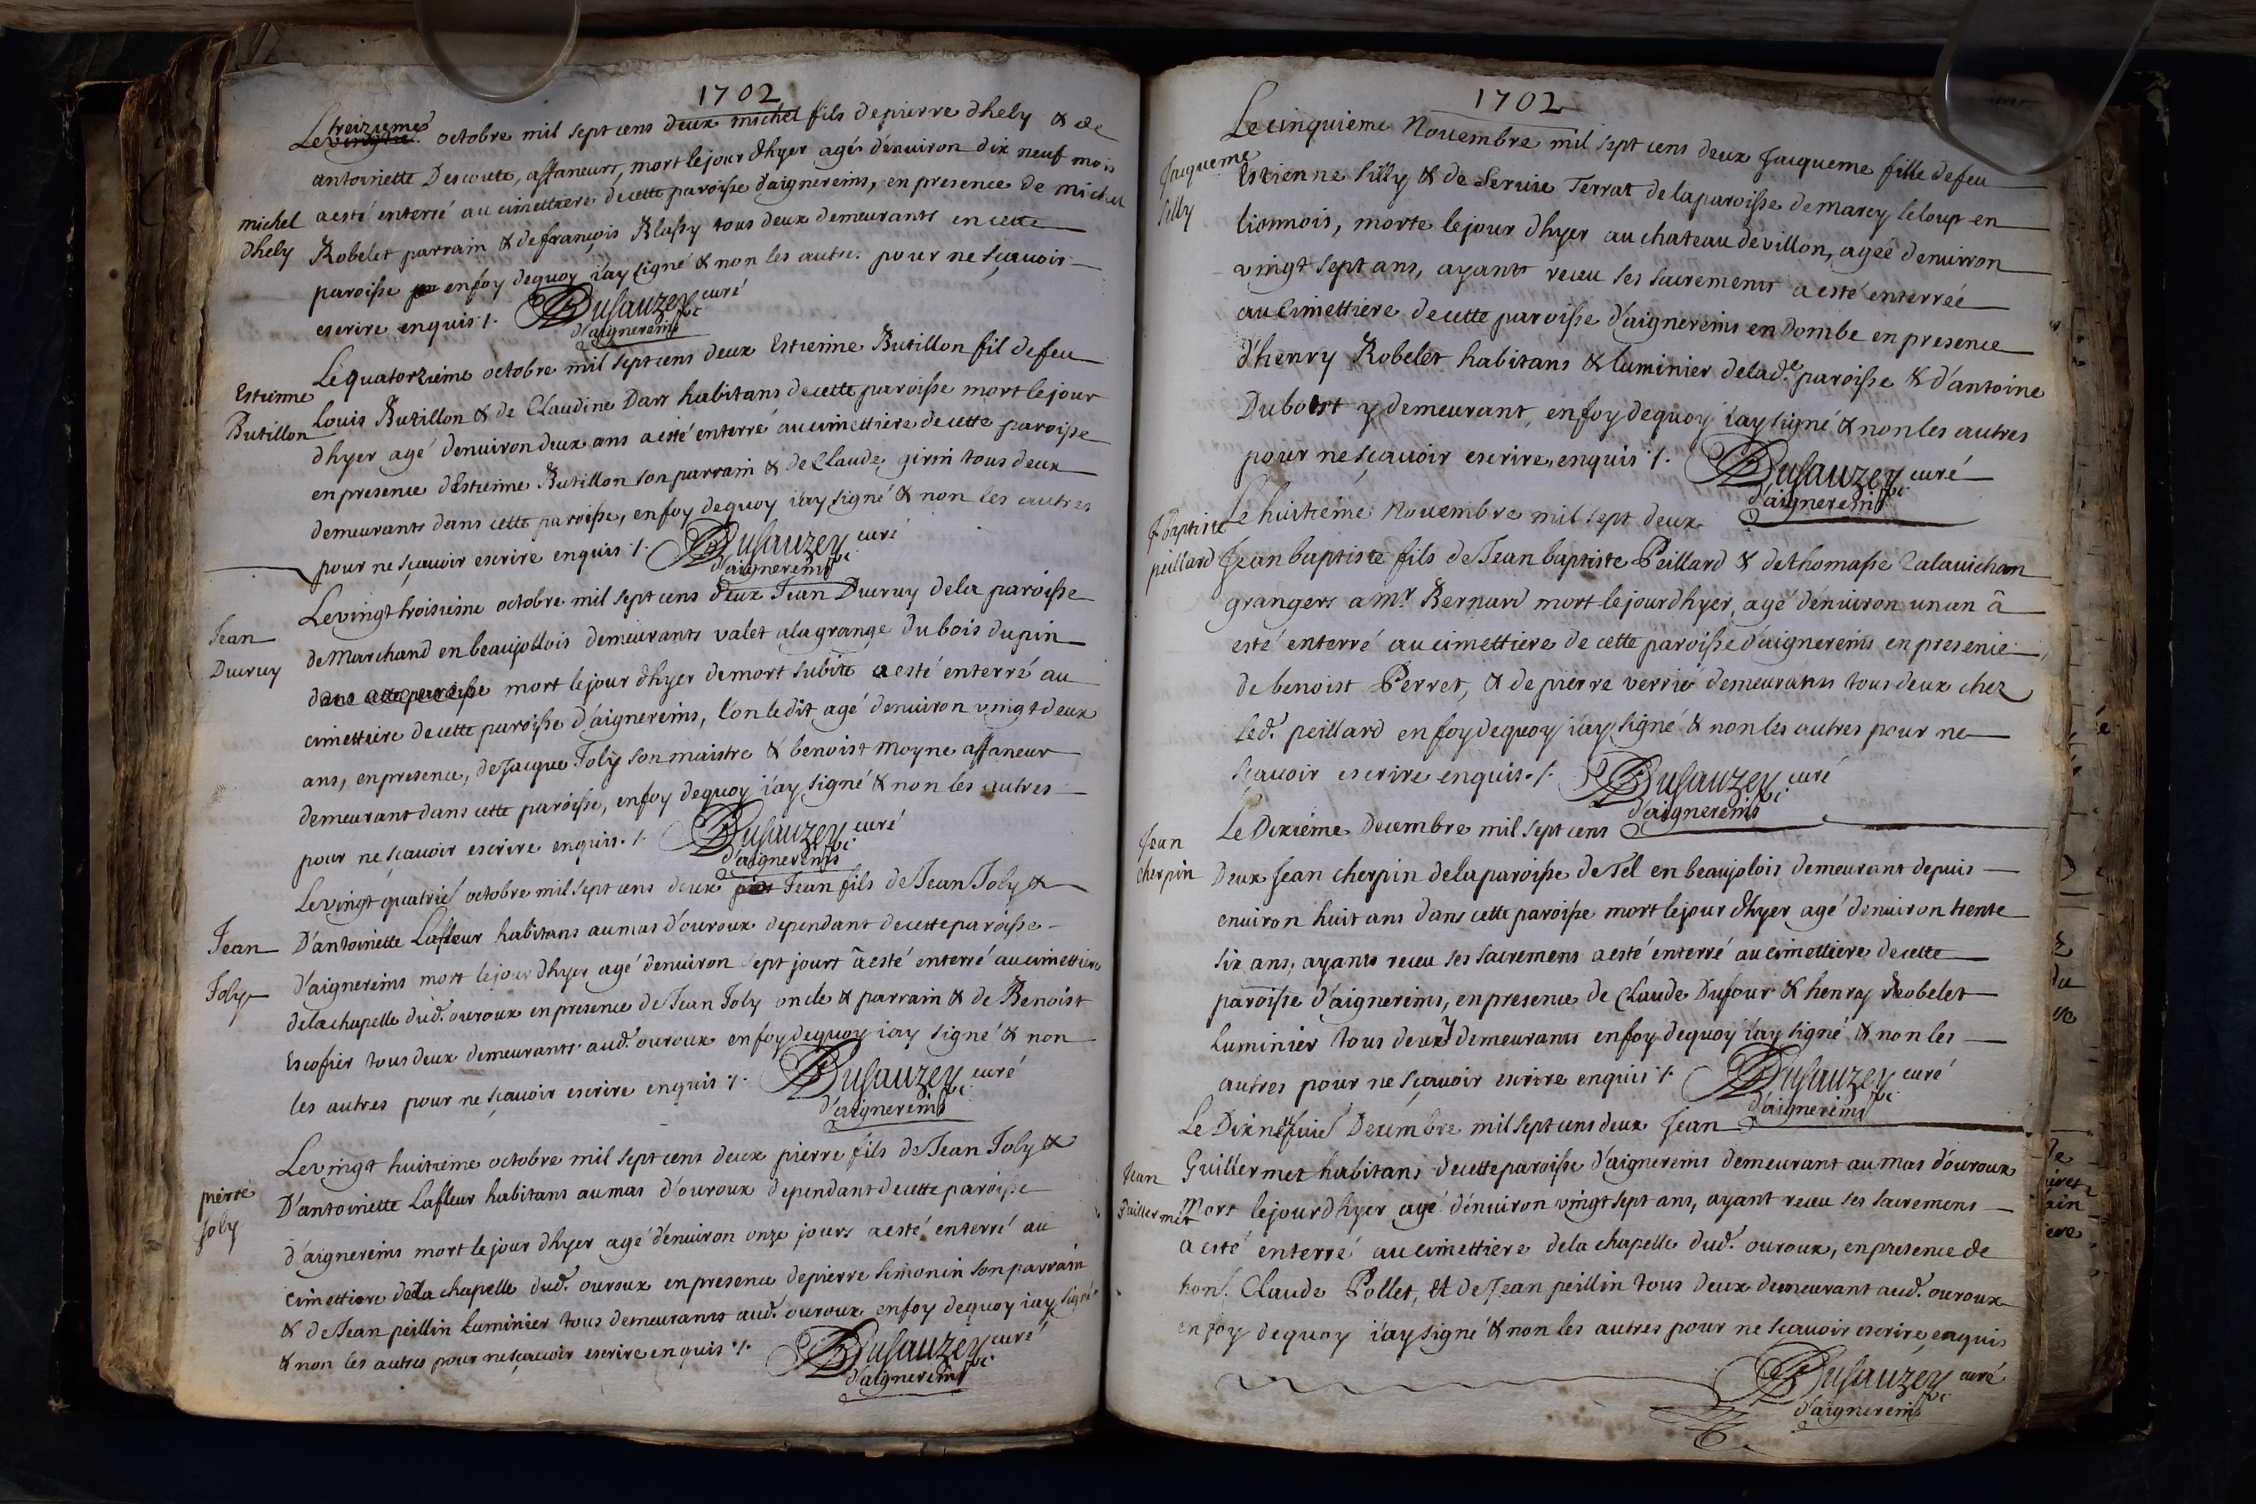 1702
treizieme
Le vingtie octobre mil sept cens deux michel fils de pierre dhely & de
antoinette Descoute, affaneurs, mort le jour dhyer agé d'enuiron dix neuf mois
michel
dhely
a esté enterré au cimettiere de cette paroisse d'aignereins, en presence de michel
Robelet parrain & de françois Blassy tous deux demeurants en cette
paroisse en foy dequoy i'ay signé & non les autres pour ne sçauoir
escrire enquis ./. Dusauzey curé
d'aignereins
Le quatorzieme octobre mil sept cens deux Estienne Butillon fil de feu
Estienne
Butillon
Louis Butillon & de Claudine Darr habitans de cette paroisse mort le jour
dhyer agé denuiron deux ans a esté enterré au cimettiere de cette paroisse
en presence d'Estienne Butillon son parrain & de Claude girin tous deux
demeurants dans cette paroisse, en foy dequoy i'ay signé & non les autres
pour ne sçauoir escrire enquis ./. Dusauzey curé
d'aignereins
Le vingt troisieme octobre mil sept cens deux Jean Ducruy de la paroisse
Jean
Ducruy
de Marchand en beaujollois demeurants valet a la grange du bois du pin
dans cette paroisse mort le jour dhyer de mort subite a esté enterré au
cimettiere de cette paroisse d'aignereins, l'on le dit agé denuiron vingt deux
ans, en presence, de Jacque Joly son maistre & benoist moyne affaneur
demeurant dans cette paroisse, en foy dequoy i'ay signé & non les autres
pour ne sçauoir escrire enquis ./. Dusauzey curé
d'aignereins
Le vingt quatrie octobre mil sept cens deux Jean fils de Jean Joly &
Jean
Joly
D'antoinette Lafleur habitans au mas d'ouroux dependant de cette paroisse
d'aignereins mort le jour dhyer agé denuiron sept jours a esté enterré au cimettiere
de la chapelle dud. ouroux en presence de Jean Joly oncle & parrain & de Benoist
Escofier tous deux demeurants aud. ouroux en foy dequoy i'ay signé & non
les autres pour ne sçauoir escrire enquis ./. Dusauzey curé
d'aignereins
Le vingt huitieme octobre mil sept cens deux pierre fils de Jean Joly &
pierre
Joly
D'antoinette Lafleur habitans au mas d'ouroux dependant de cette paroisse
d'aignereins mort le jour dhyer agé d'enuiron onze jours a esté enterré au
cimettiere de la chapelle dud. ouroux en presence de pierre simonin son parrain
& de Jean peillin Luminier tous demeurants aud. ouroux en foy dequoy i'ay signé
& non les autres pour ne sçauoir escrire enquis ./. Dusauzey curé
d'aignereins
1702
Le cinquieme Nouembre mil sept cens deux Jacqueme fille de feu
Jacqueme
silly
Estienne silly & de Seruie Terrat de la paroisse de marcy le loup en
lionnois, morte le jour dhyer au chateau de villon, ageé denuiron
vingt sept ans, ayants receu ses sacrements a esté enterrée
au cimettiere de cette paroisse d'aignereins en Dombe en presence
d'henry Robelet habitans & luminier de lad. paroisse & d'antoine
Duboist y demeurant, en foy dequoy i'ay signé & non les autres
pour ne sçauoir escrire, enquis ./. Dusauzey curé
d'aignereins
Le huitiéme Nouembre mil sept deux
J baptiste
peillard
Jean baptiste fils de Jean baptiste Peillard & de thomasse Calauichan
grangers a Mr. Bernard mort le jour dhyer, agé denuiron un an a
esté enterré au cimettiere de cette paroisse d'aignereins en presence
de benoist Perret, & de pierre verrie demeurants tous deux chez
led. peillard en foy dequoy i'ay signé & non les autres pour ne
sçauoir escrire enquis ./. Dusauzey curé
d'aignereins
Le Dixiéme Decembre mil sept cens
Jean
cherpin
Deux Jean cherpin de la paroisse de Tel en beaujolois demeurant depuis
enuiron huit ans dans cette paroisse mort le jour dhyer agé denuiron trente
six ans, ayants receu ses sacremens a esté enterré au cimettiere de cette
paroisse d'aignereins, en presence de Claude Dufour & henry Robelet
Luminier tous deux y demeurants en foy dequoy i'ay signé & non les
autres pour ne sçauoir escrire enquis ./. Dusauzey curé
d'aignereins
Le Dixneufuie Decembre mil sept cens deux Jean
Jean
Guillermet
Guillermet habitans de cette paroisse d'aignereins demeurant au mas d'ouroux
Mort le jour dhyer agé d'enuiron vingt sept ans, ayant receu ses sacremens
a esté enterré au cimettiere de la chapelle dud. ouroux, en presence de
hon. Claude Pollet, et de Jean peillin tous deux demeurant aud. ouroux
en foy dequoy i'ay signé & non les autres pour ne sçauoir escrire, enquis
Dusauzey curé
d'aignereins